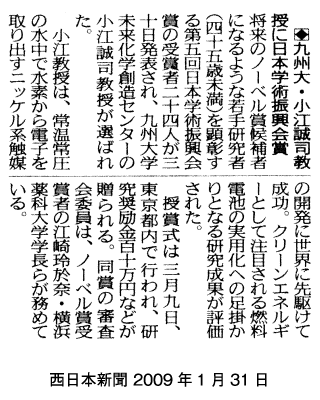 ◆九州大・小江誠司教
授に日本学術振興会賞
将来のノーベル賞候補者
になるような若手研究者
(四十五歳未満)を顕彰す
る第五回日本学術振興会
賞の受賞者二十四人が三
十日発表され、九州大学
未来化学創造センターの
小江誠司教授が選ばれ
た。
　小江教授は、常温常圧
の水中で水素から電子を
取り出すニッケル系触媒
の開発に世界に先駆けて
成功。クリーンエネルギ
ーとして注目される燃料
電池の実用化への足掛か
りとなる研究成果が評価
された。
　授賞式は三月九日、
東京都内で行われ、研
究奨励金百十万円などが
贈られる。同賞の審査
会委員は、ノーベル賞受
賞者の江崎玲於奈・横浜
薬科大学学長らが務めて
いる。
西日本新聞 2009 年 1 月 31 日